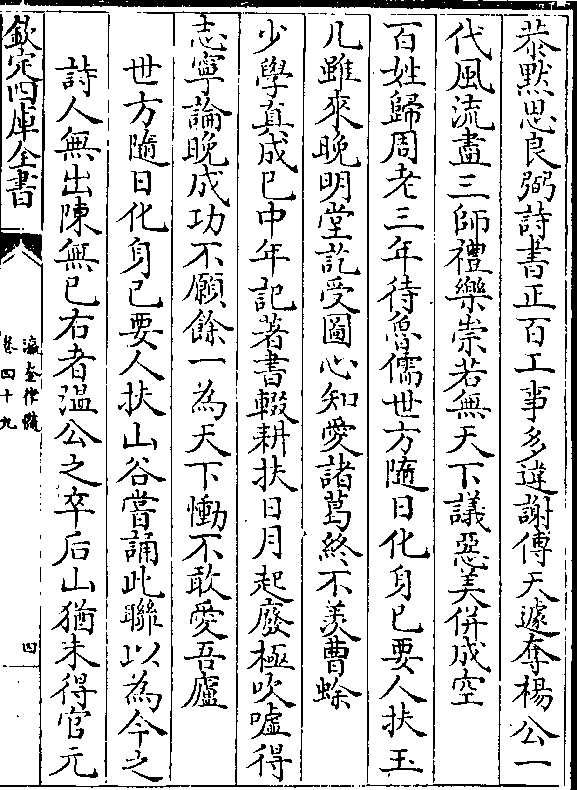 恭默思良弼詩書正百工事多違謝傅天遽奪楊公一
代風流盡三師禮樂崇若無天下議惡美併成空
百姓歸周老三年待魯儒世方隨日化身已要人扶玉
几雖來晚明堂訖受圖心知愛諸葛終不羡曹蜍
少學真成已中年記著書輟耕扶日月起廢極吹噓得
志寧論晚成功不願餘一為天下慟不敢愛吾廬
世方隨日化身已要人扶山谷嘗誦此聯以為今之
詩人無出陳無已右者溫公之卒后山猶未得官元
欽定四庫全書
瀛奎律髓
卷四十九
四